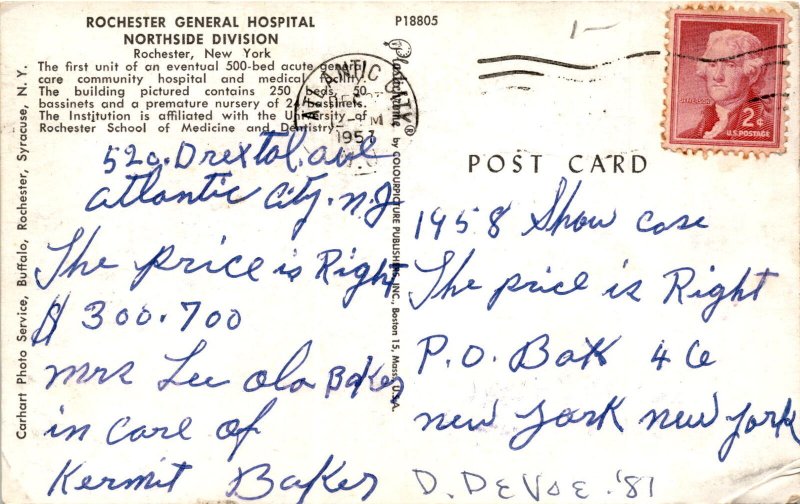 ROCHESTER GENERAL HOSPITAL
NORTHSIDE DIVISION
Rochester, New York
The first unit of an eventual 500-bed acute general
care community hospital and medical facility.
The building pictured contains 250 beds, 50
bassinets and a premature nursery of 24 bassinets.
The Institution is affiliated with the University of
Rochester School of Medicine and Dentistry.
520. Drextal. ave
atlantic City. N.J
The price is Right
$ 300.700
Mrs Lee ola Baker
in care of
Kermit Baker
Carhart Photo Service, Buffalo, Rochester, Syracuse, N. Y.
P18805
Plastichrome ® by COLOURPICTURE PUBLISHERS, INC., Boston 15, Mass., U.S.A.
ATLANTIC CITY
1957
JEFFERSON
2¢
U.S. POSTAGE
POST CARD
1958 Show case
The price is Right
P.O. Box 46
new york new york
D. DEVOE. '81